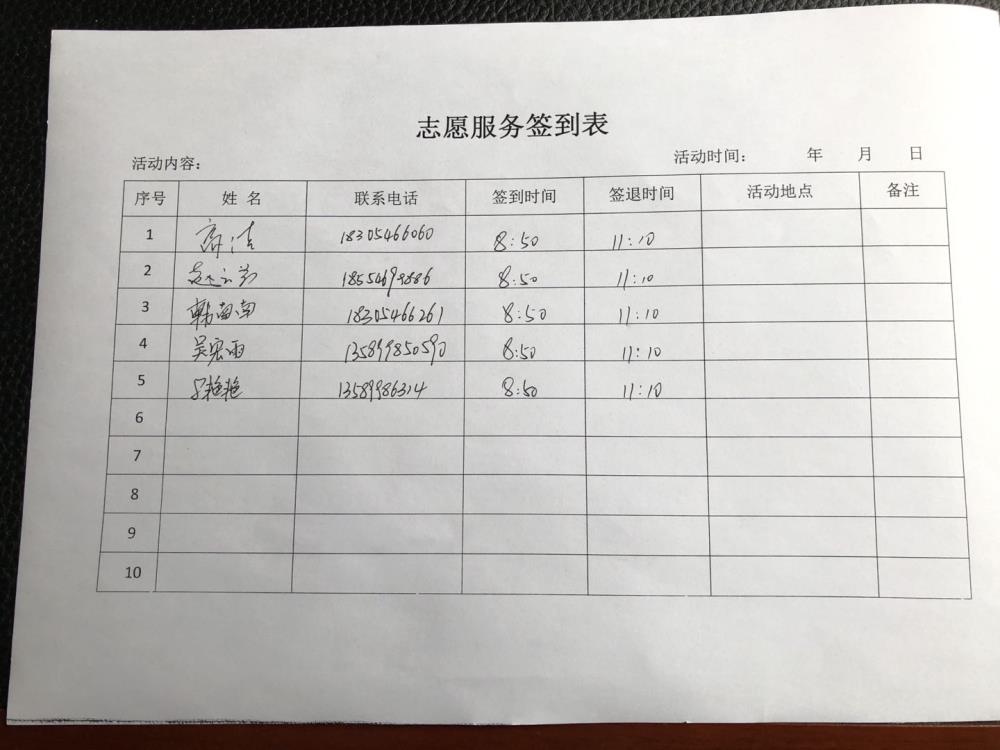 志愿服务签到表
活动内容： 活动时间： 年 月 日
序号 姓 名 联系电话 签到时间 签退时间 活动地点 备注
1 18305466060 8:50 11:10
2 8:50 11:10
3 韩南南 18305466261 8:50 11:10
4 吴宏雨 13589985090 8:50 11:10
5 艳艳 13589986314 8:50 11:10
6
7
8
9
10